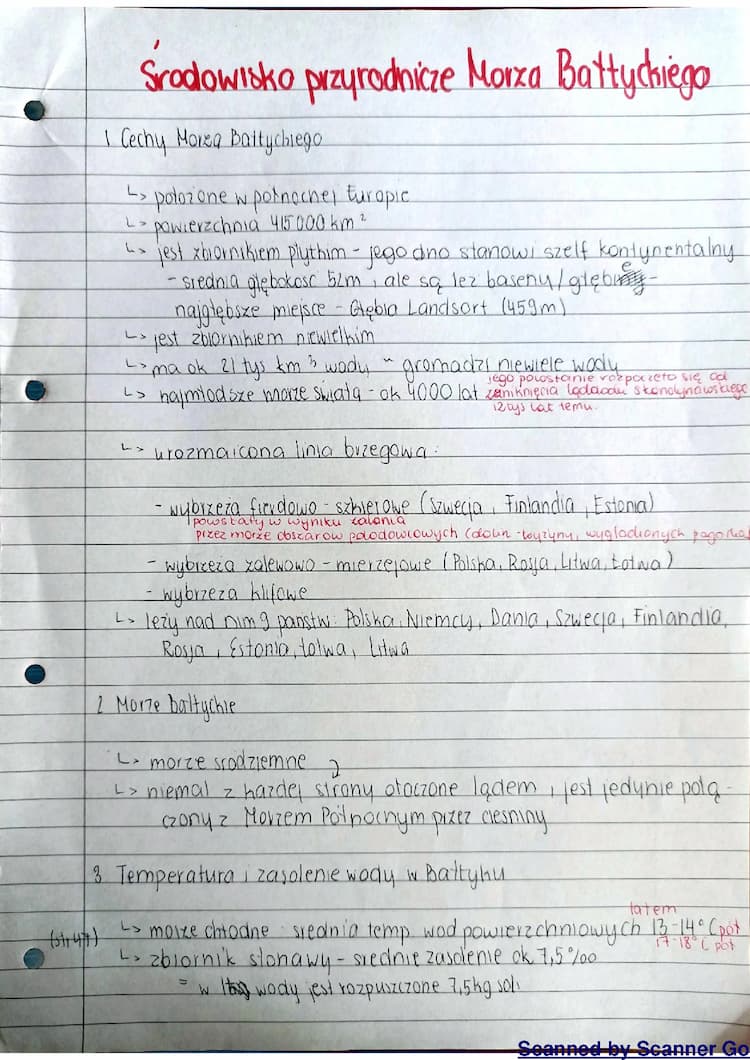 Środowisko przyrodnicze Morza Bałtyckiego
1 Cechy Morza Bałtyckiego
↳ położone w północnej Europie
↳ powierzchnia 415 000 km²
↳ jest zbiornikiem płytkim - jego dno stanowi szelf kontynentalny
- średnia głębokość 52m, ale są też baseny/głębie -
najgłębsze miejsce - Głębia Landsort (459m)
↳ jest zbiornikiem niewielkim
↳ ma ok 21 tys km³ wody ~ gromadzi niewiele wody
↳ najmłodsze morze świata - ok 4000 lat
jego powstanie rozpoczęto się od
zaniknięcia lądolodu skandynawskiego
12 tys lat temu.
↳ urozmaicona linia brzegowa:
- wybrzeża fierdowo - szkierowe (Szwecja, Finlandia, Estonia)
powstały w wyniku zalania
przez morze obszarów polodowcowych (dolin
wygładzonych
- wybrzeża zalewowo - mierzejowe (Polska, Rosja, Litwa, Łotwa)
- wybrzeża klifowe
↳ leży nad nim 9 państw: Polska, Niemcy, Dania, Szwecja, Finlandia,
Rosja, Estonia, Łotwa, Litwa
2 Morze bałtyckie
↳ morze śródziemne
↳ niemal z każdej strony otoczone lądem, jest jedynie połą-
czony z Morzem Północnym przez cieśniny
3 Temperatura i zasolenie wody w Bałtyku
latem
(str 47) ↳ morze chłodne: średnia temp. wód powierzchniowych 13-14°C półn
17-18°C
↳ zbiornik słonawy - średnie zasolenie ok 7,5‰
= w wody jest rozpuszczone 7,5kg soli
Scanned by Scanner Go